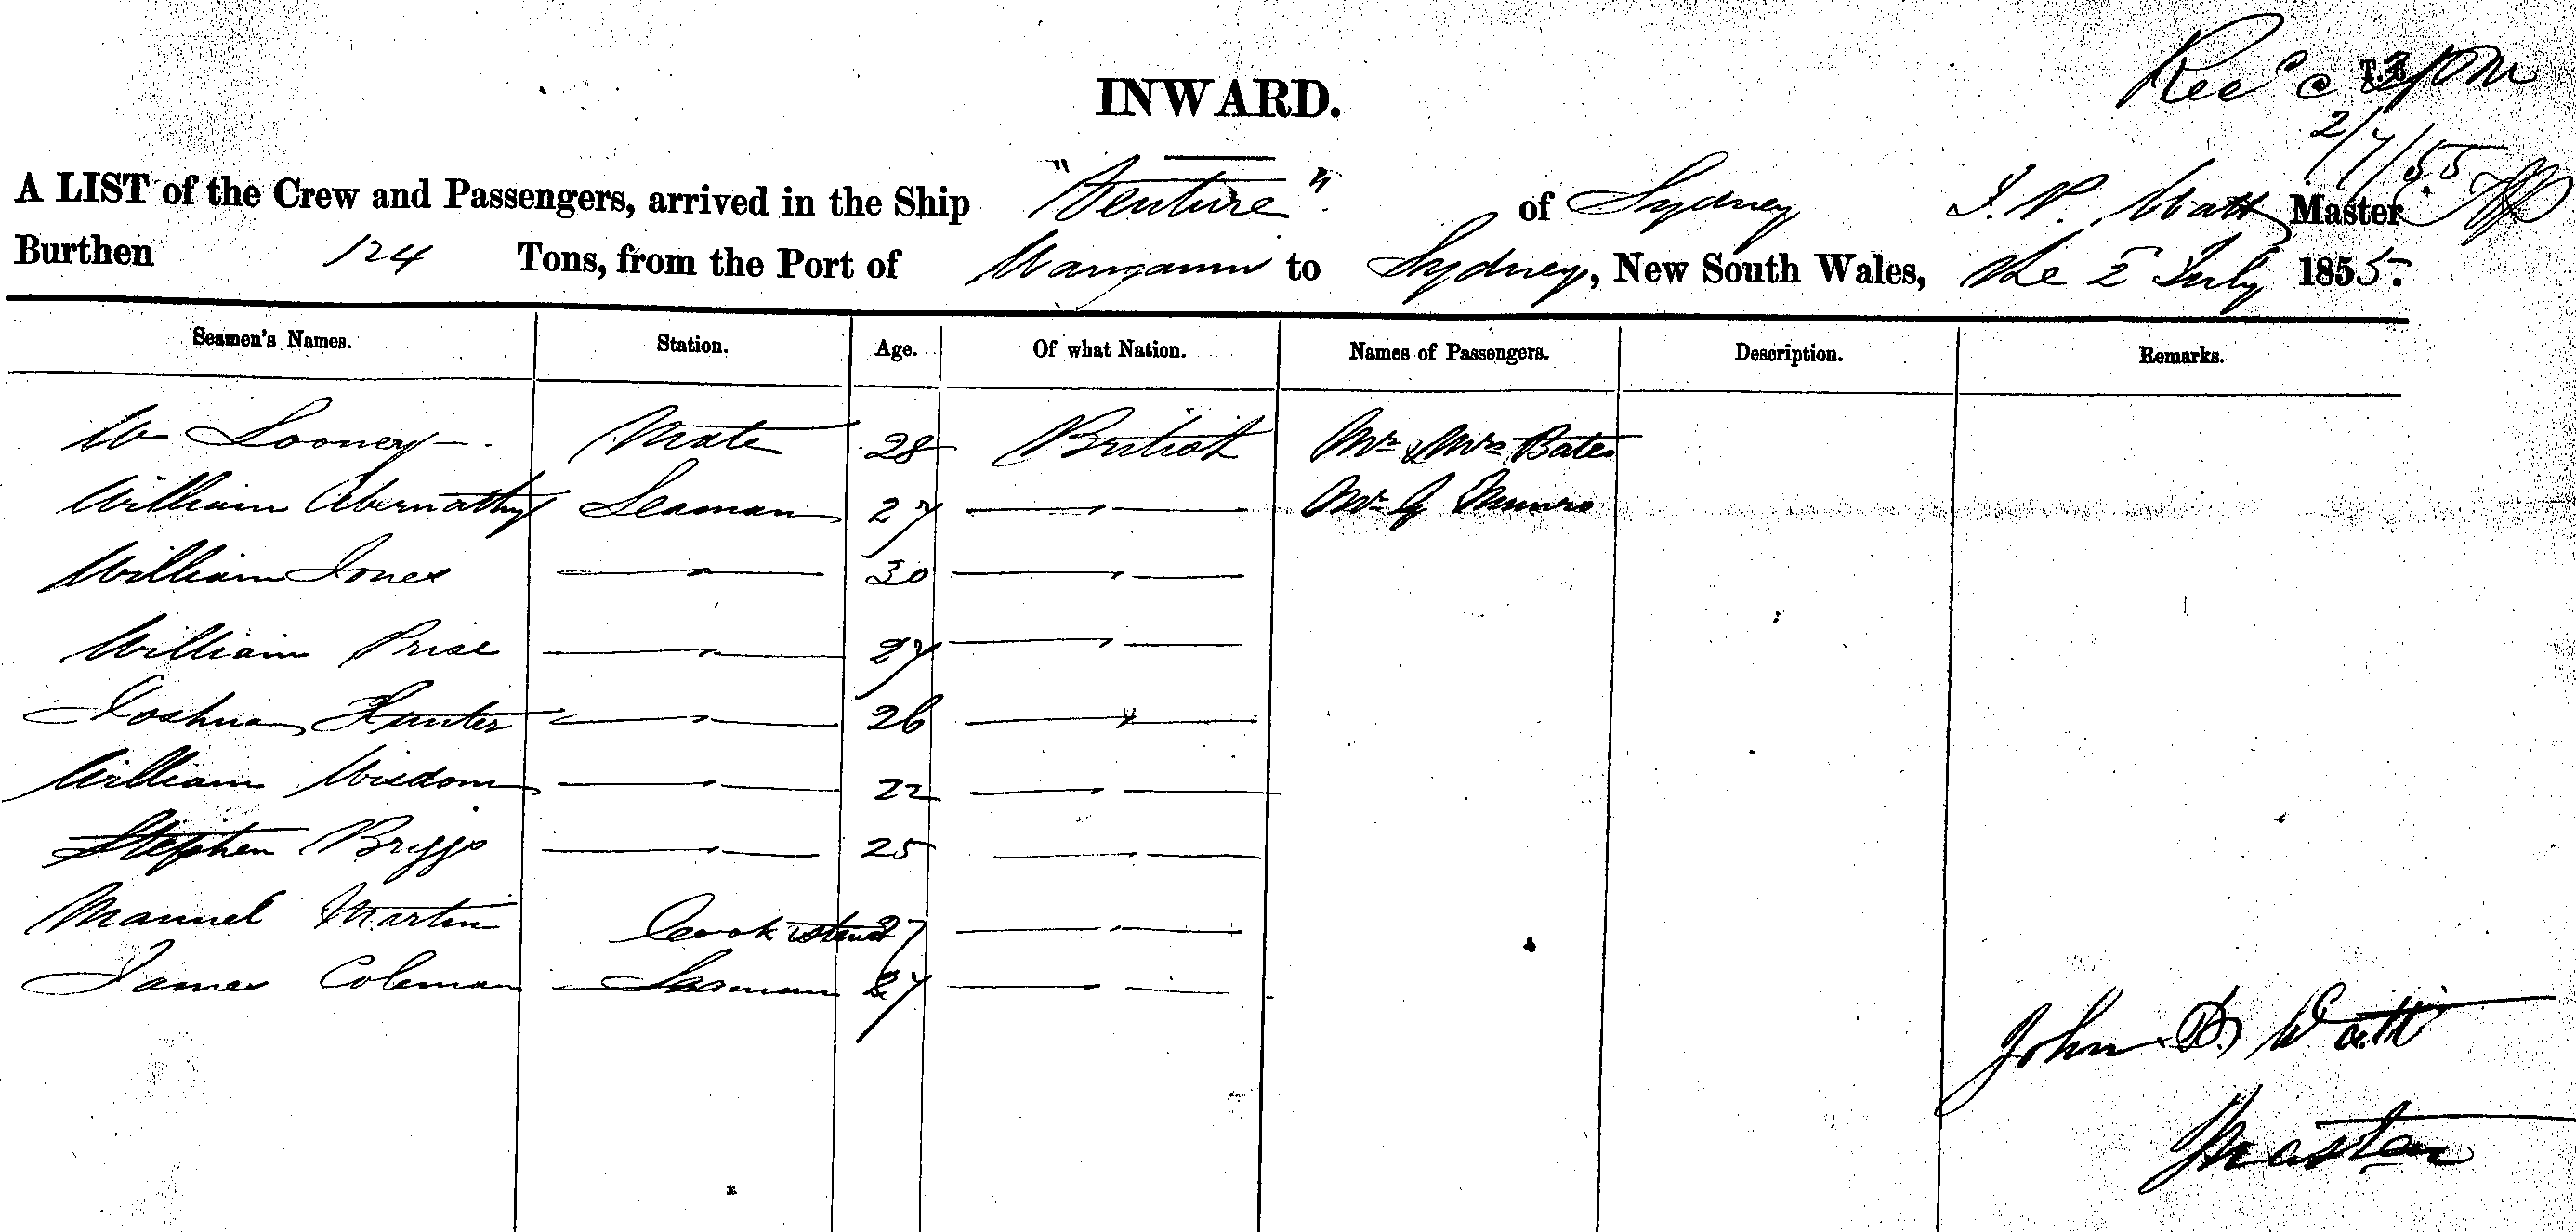 INWARD.
Rec'd 3 pm
2/7/55
A LIST of the Crew and Passengers, arrived in the Ship "Venture" of Sydney J. D. Watt Master
Burthen 124 Tons, from the Port of to Sydney, New South Wales, the 2 July 1855.
Seamen's Names. Station. Age. Of what Nation. Names of Passengers. Description. Remarks.
W Looney Mate 28 British Mr & Mrs Bates
William Abernathy Seaman 27 — " — Mr G Munro
William Jones — " — 30 — " —
William Prise — " — 27 — " —
Joshua Hunter — " — 26 — " —
William Wisdom — " — 22 — " —
Stephen Briggs — " — 25 — " —
Manuel Martin Cook & Steward 27 — " —
James Coleman Seaman 27 — " —
John D. Watt
Master